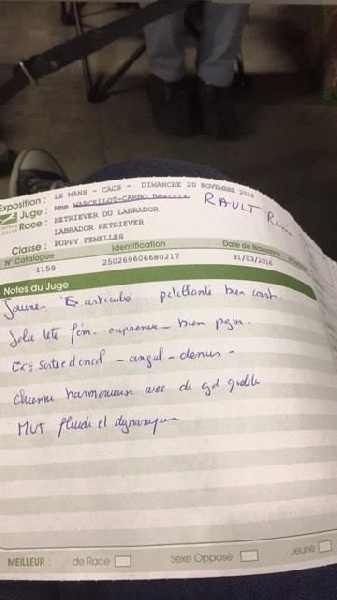 Exposition : LE MANS - CACS - DIMANCHE 20 NOVEMBRE 2016
Juge : Mme MARCELLOT-CARRE RAULT
Race : RETRIEVER DU LABRADOR
LABRADOR RETRIEVER
Classe : PUPPY FEMELLES
N° Catalogue Identification Date de Naissance
1159 250269606680217 31/03/2016
Notes du Juge
Jaune. Ex articulé pétillante bien const.
Jolie tête fém. expressive - bien pigm.
Ex sortie d'encol - angul - dessus -
Chienne harmonieuse avec de gde qualité
MVT fluide et dynamique
MEILLEUR : de Race Sexe Opposé Jeune